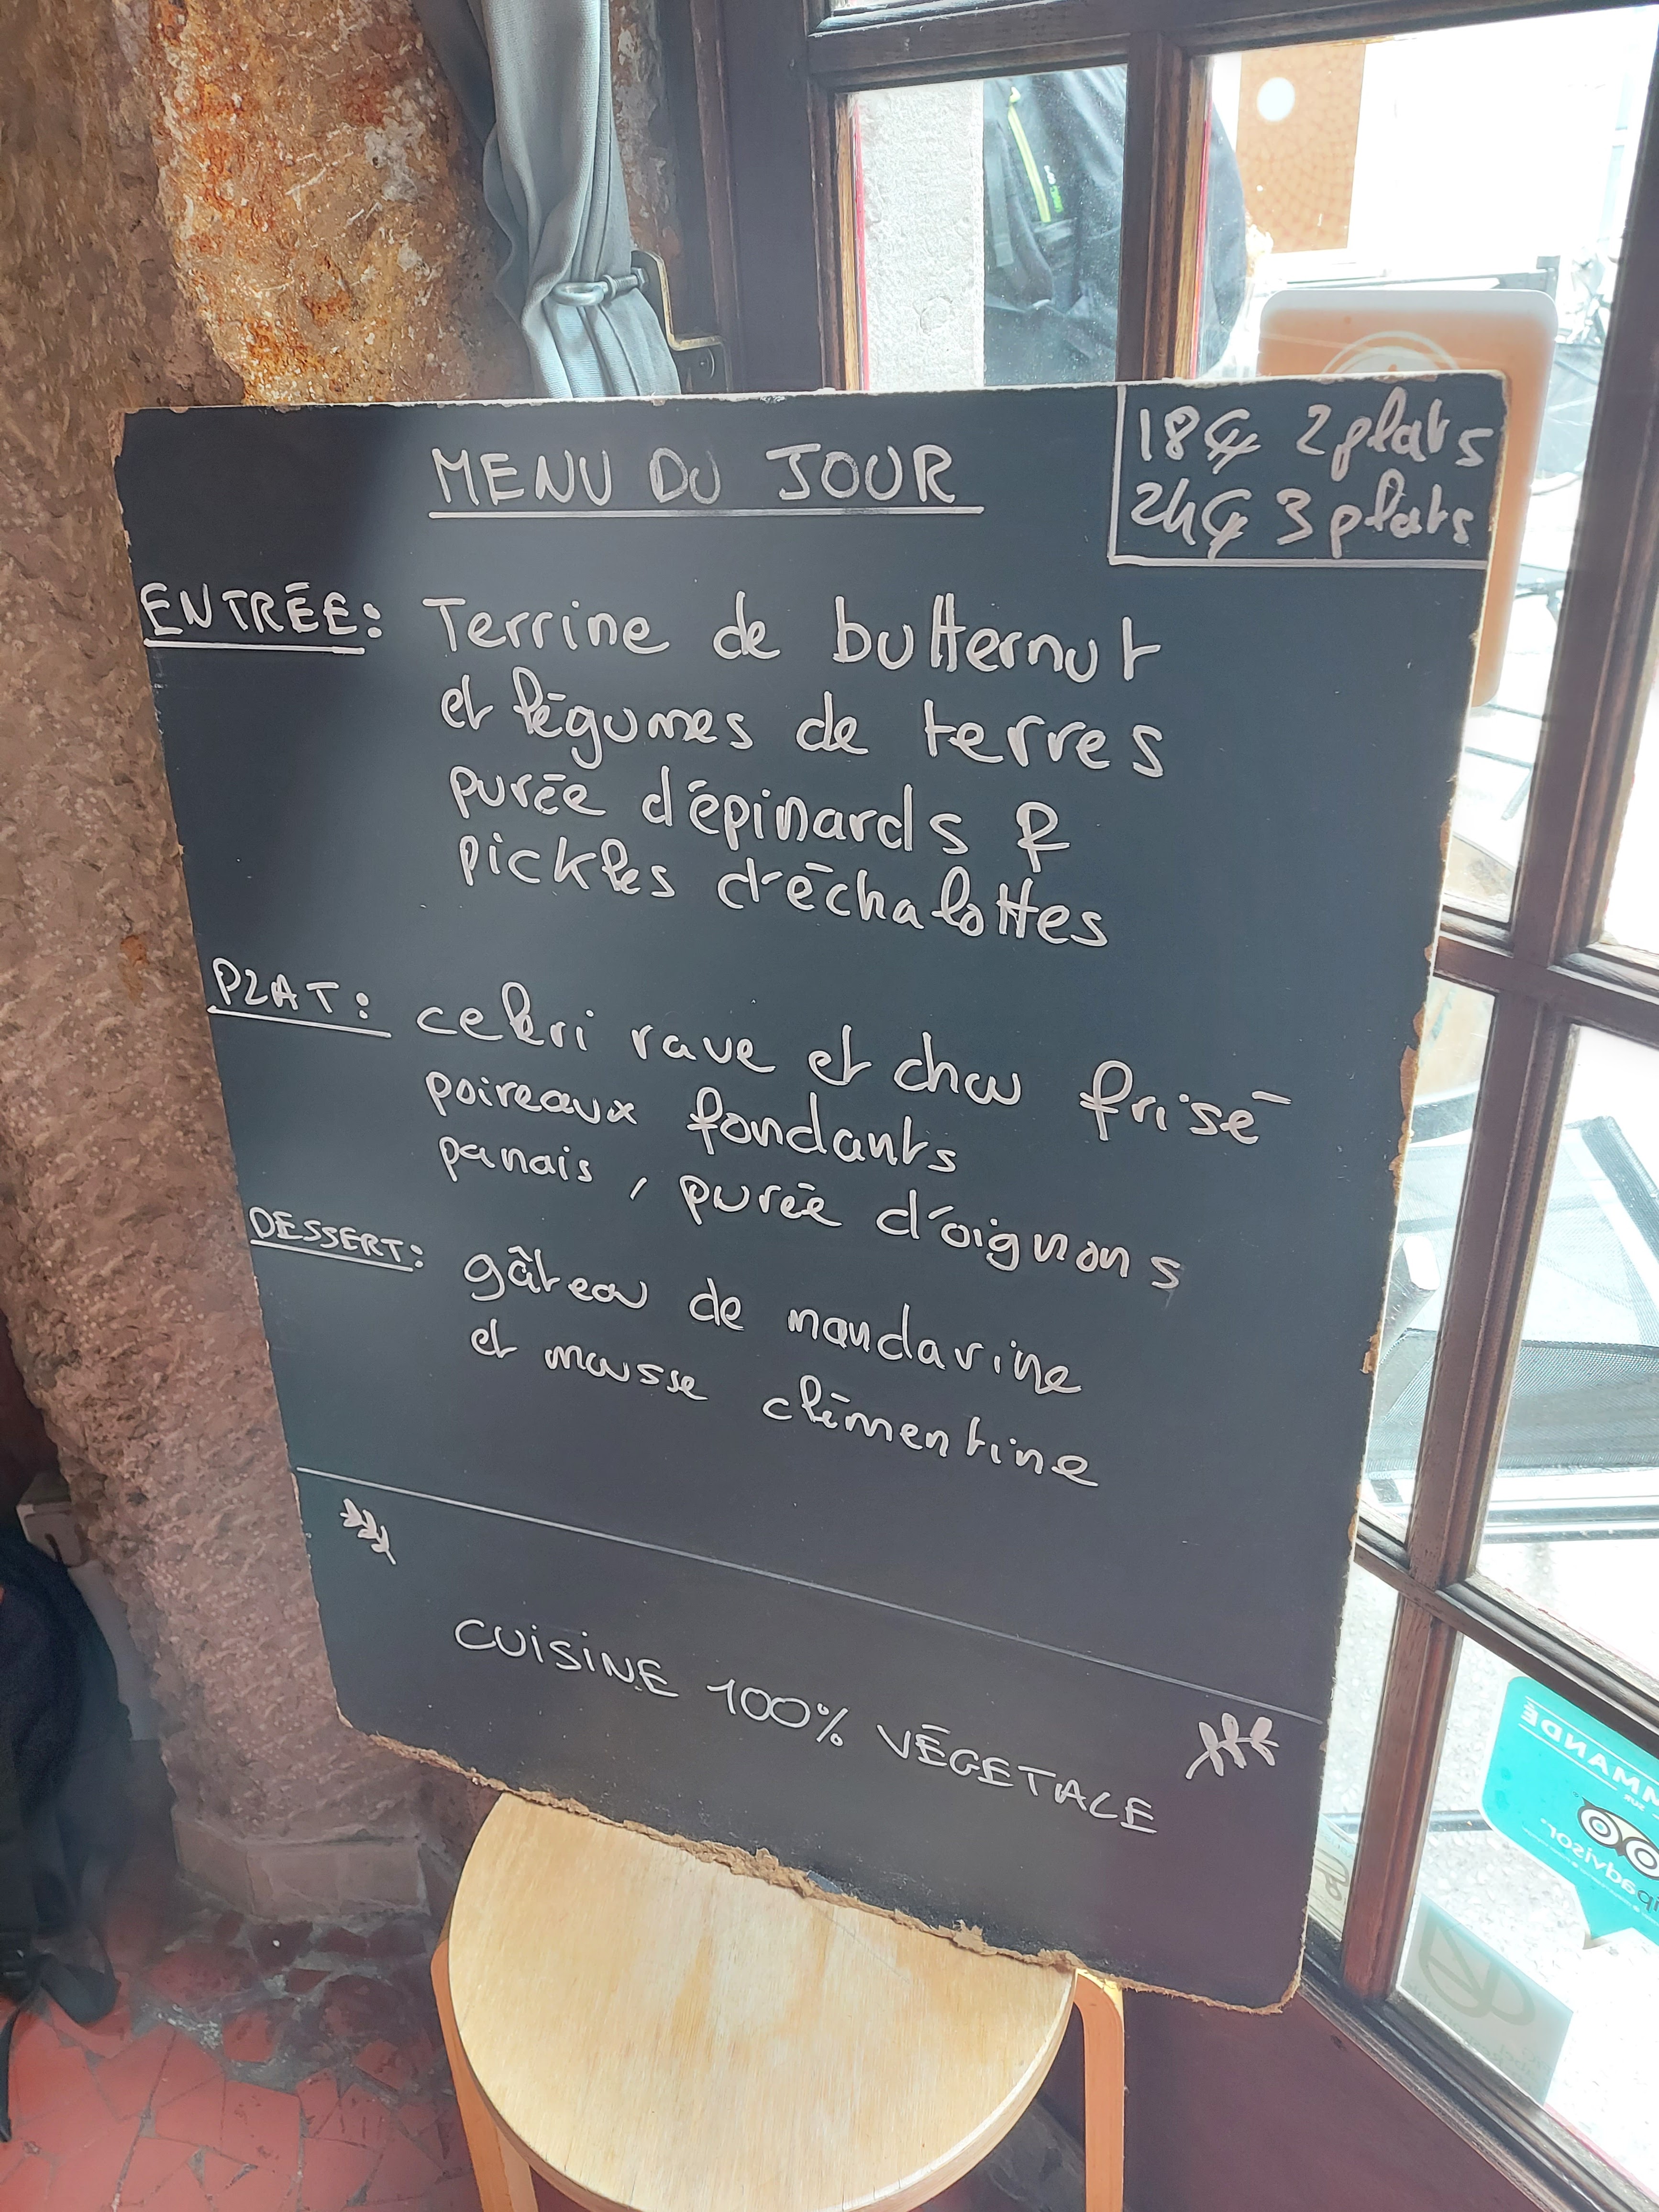 MENU DU JOUR
18€ 2 plats
24€ 3 plats
ENTRÉE: Terrine de butternut
et légumes de terres
purée d'épinards &
pickles d'échalottes
PLAT: celeri rave et chou frisé
poireaux fondants
panais, purée d'oignons
DESSERT: gâteau de mandarine
et mousse clémentine
CUISINE 100% VÉGETALE